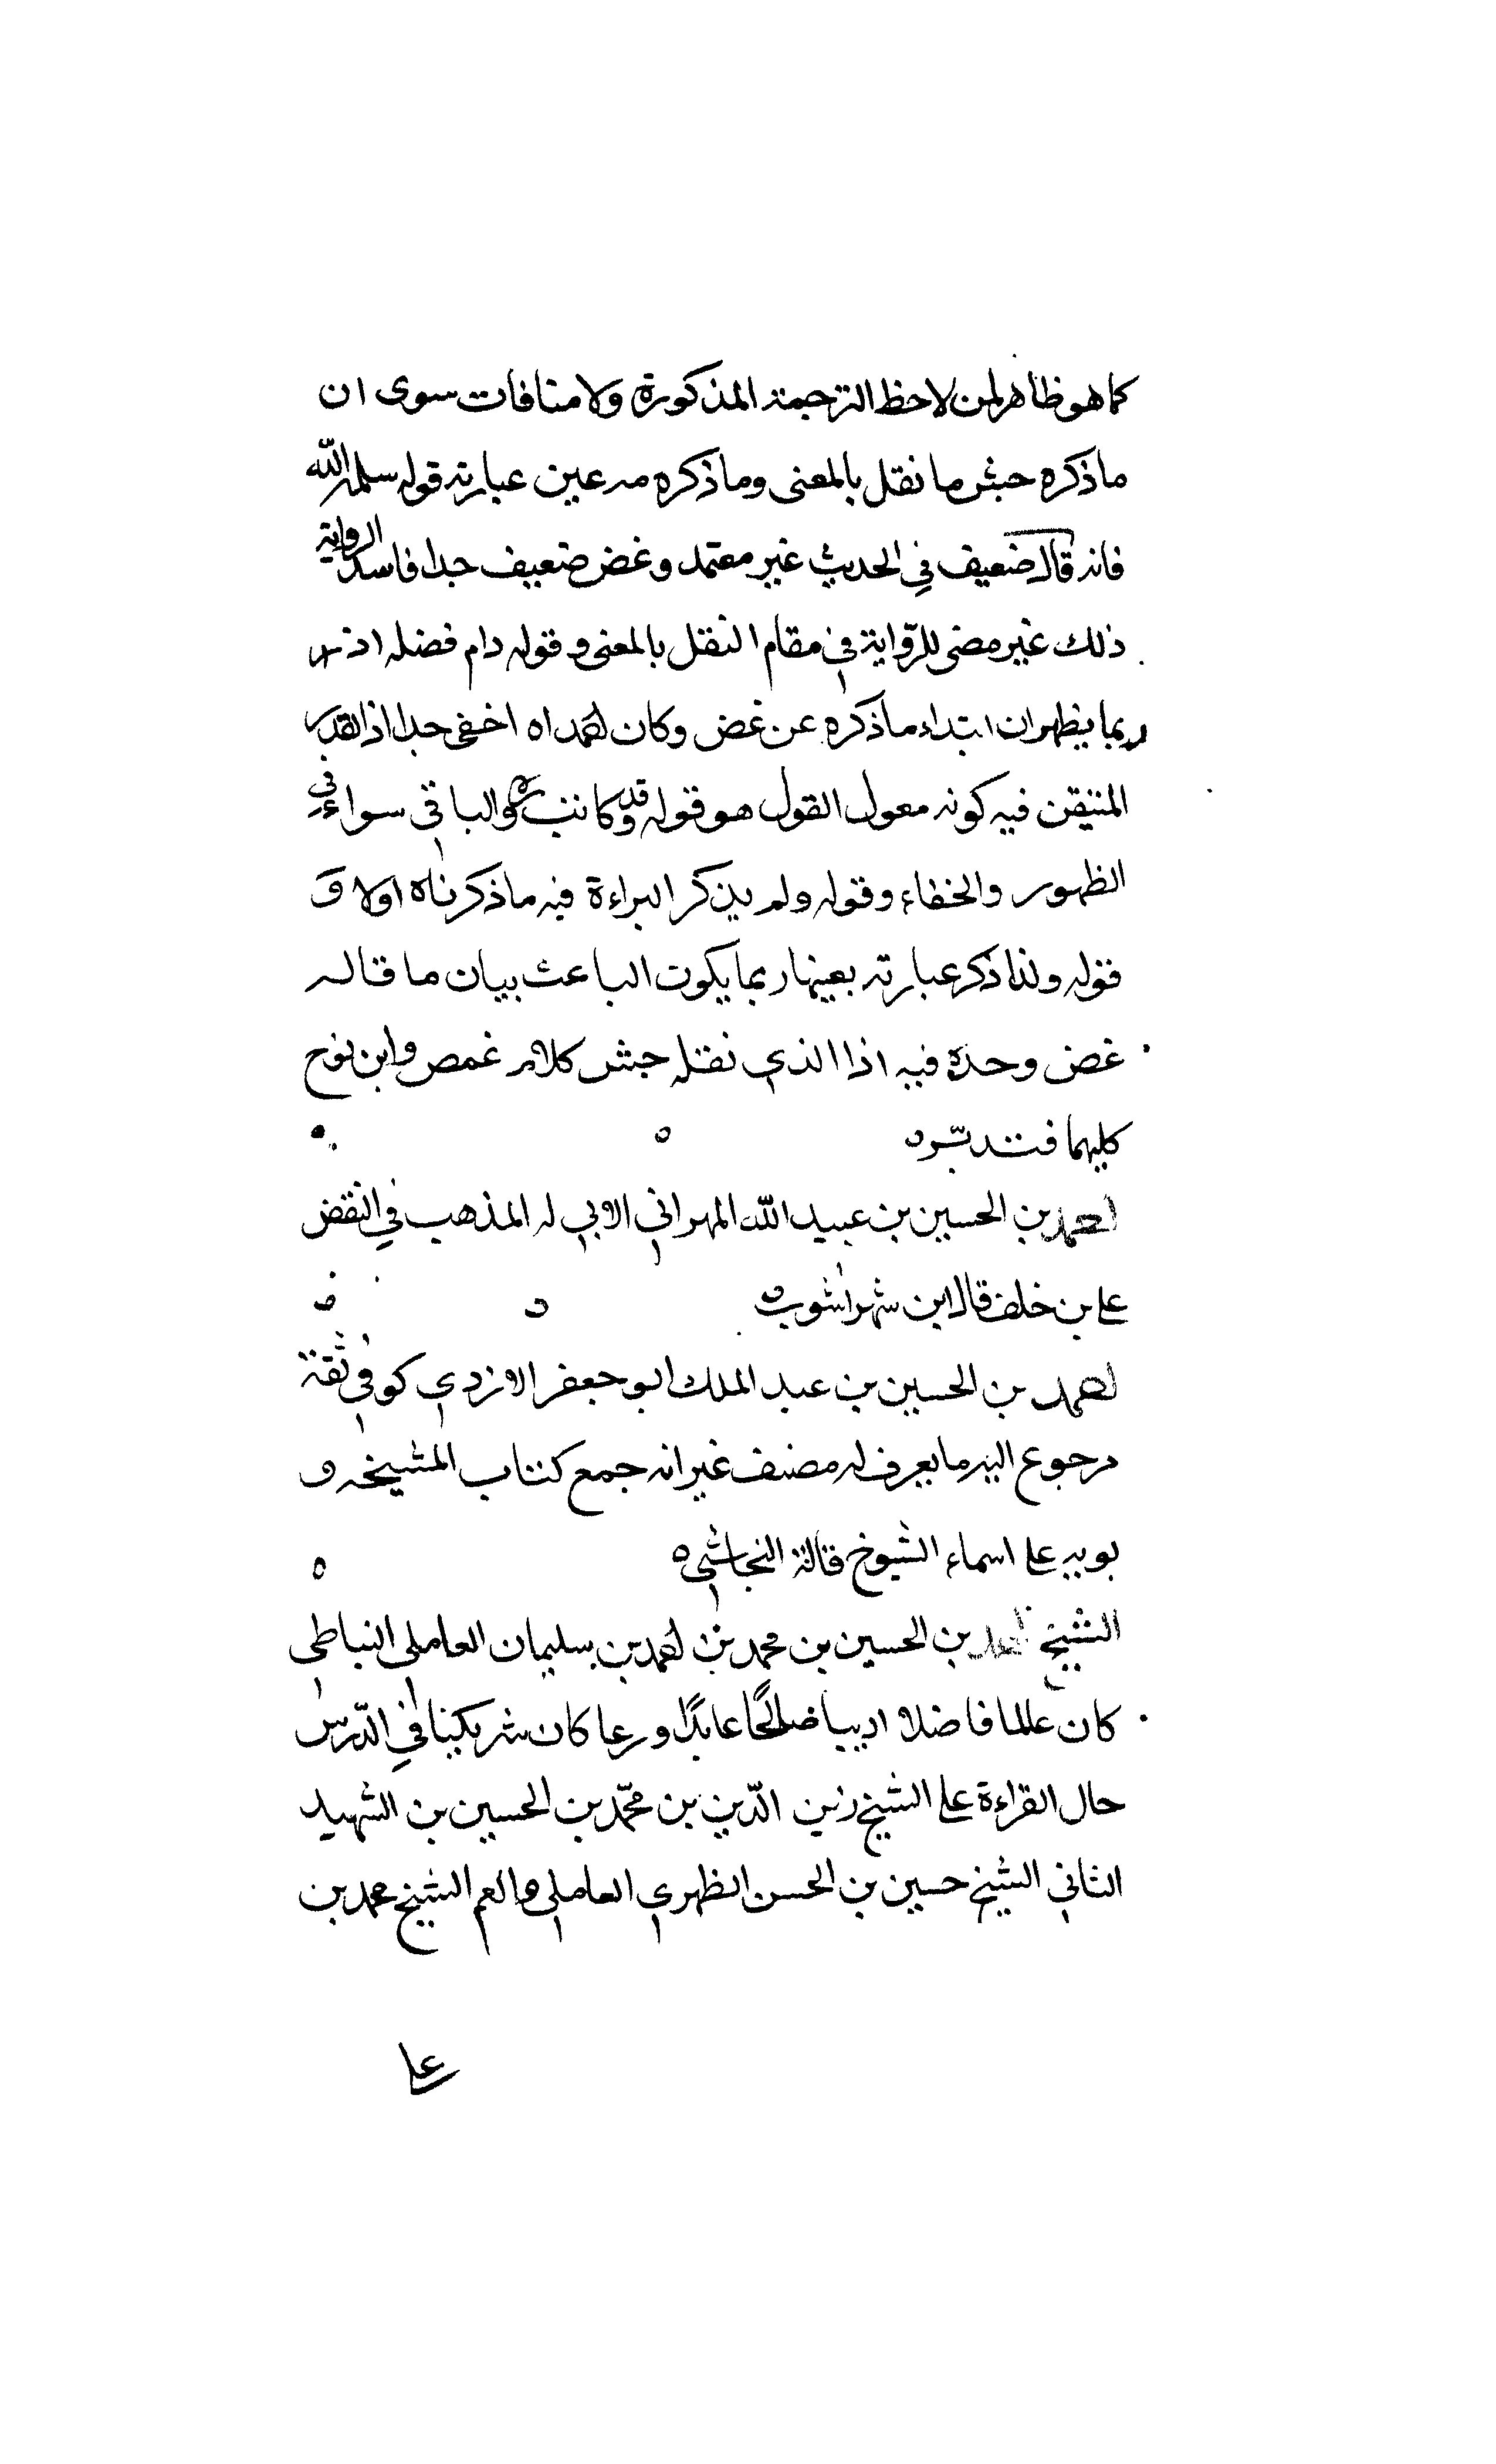 كما هو ظاهر لمن لاحظ الترجمة المذكورة ولا منافات سوى ان
ما ذكره جش ما نقل بالمعنى وما ذكره مه عين عبارته قوله سلمه الله
فانه قال ضعيف في الحديث غير معتمد وغض ضعيف جدا فاسد الرواية
ذلك غير مضى للرّواية في مقام النقل بالمعنى وقوله دام فضله اذ
ربما يظهر ان ابتداء ما ذكره عن غض وكان احمد اه اخفى جدا اذ القدر
المتيقن فيه كونه معول القول هو قوله وقد كانت والباقى سواء في
الظهور والخفاء وقوله ولم يذكر البراءة فيه ما ذكرناه اولا و
قوله ولذا ذكر عبارته بعينها ربما يكون الباعث بيان ما قاله
غض وحده فيه اذا الذي نقله جش كلام غمص وابن نوح
كليهما فتدبّر ه
احمد بن الحسين بن عبيد الله المهراني الابي له المذهب في النقض
على بن خلف قال ابن شهراشوب ه
احمد بن الحسين بن عبد الملك ابو جعفر الازدي كوفي ثقة
مرجوع اليه ما يعرف له مصنف غير انه جمع كتاب المشيخه و
بوبه على اسماء الشيوخ قالة النجاشي ه
الشيخ احمد بن الحسين بن محمد بن احمد بن سليمان العاملى النباطى
كان عالما فاضلا اديبا صالحًا عابدًا ورعا كان شريكينا في الدّرس
حال القراءة على الشيخ زين الدّين بن محمّد بن الحسين بن الشهيد
الثاني الشيخ حسين بن الحسن الظهري العاملي والعم الشيخ محمد بن
على